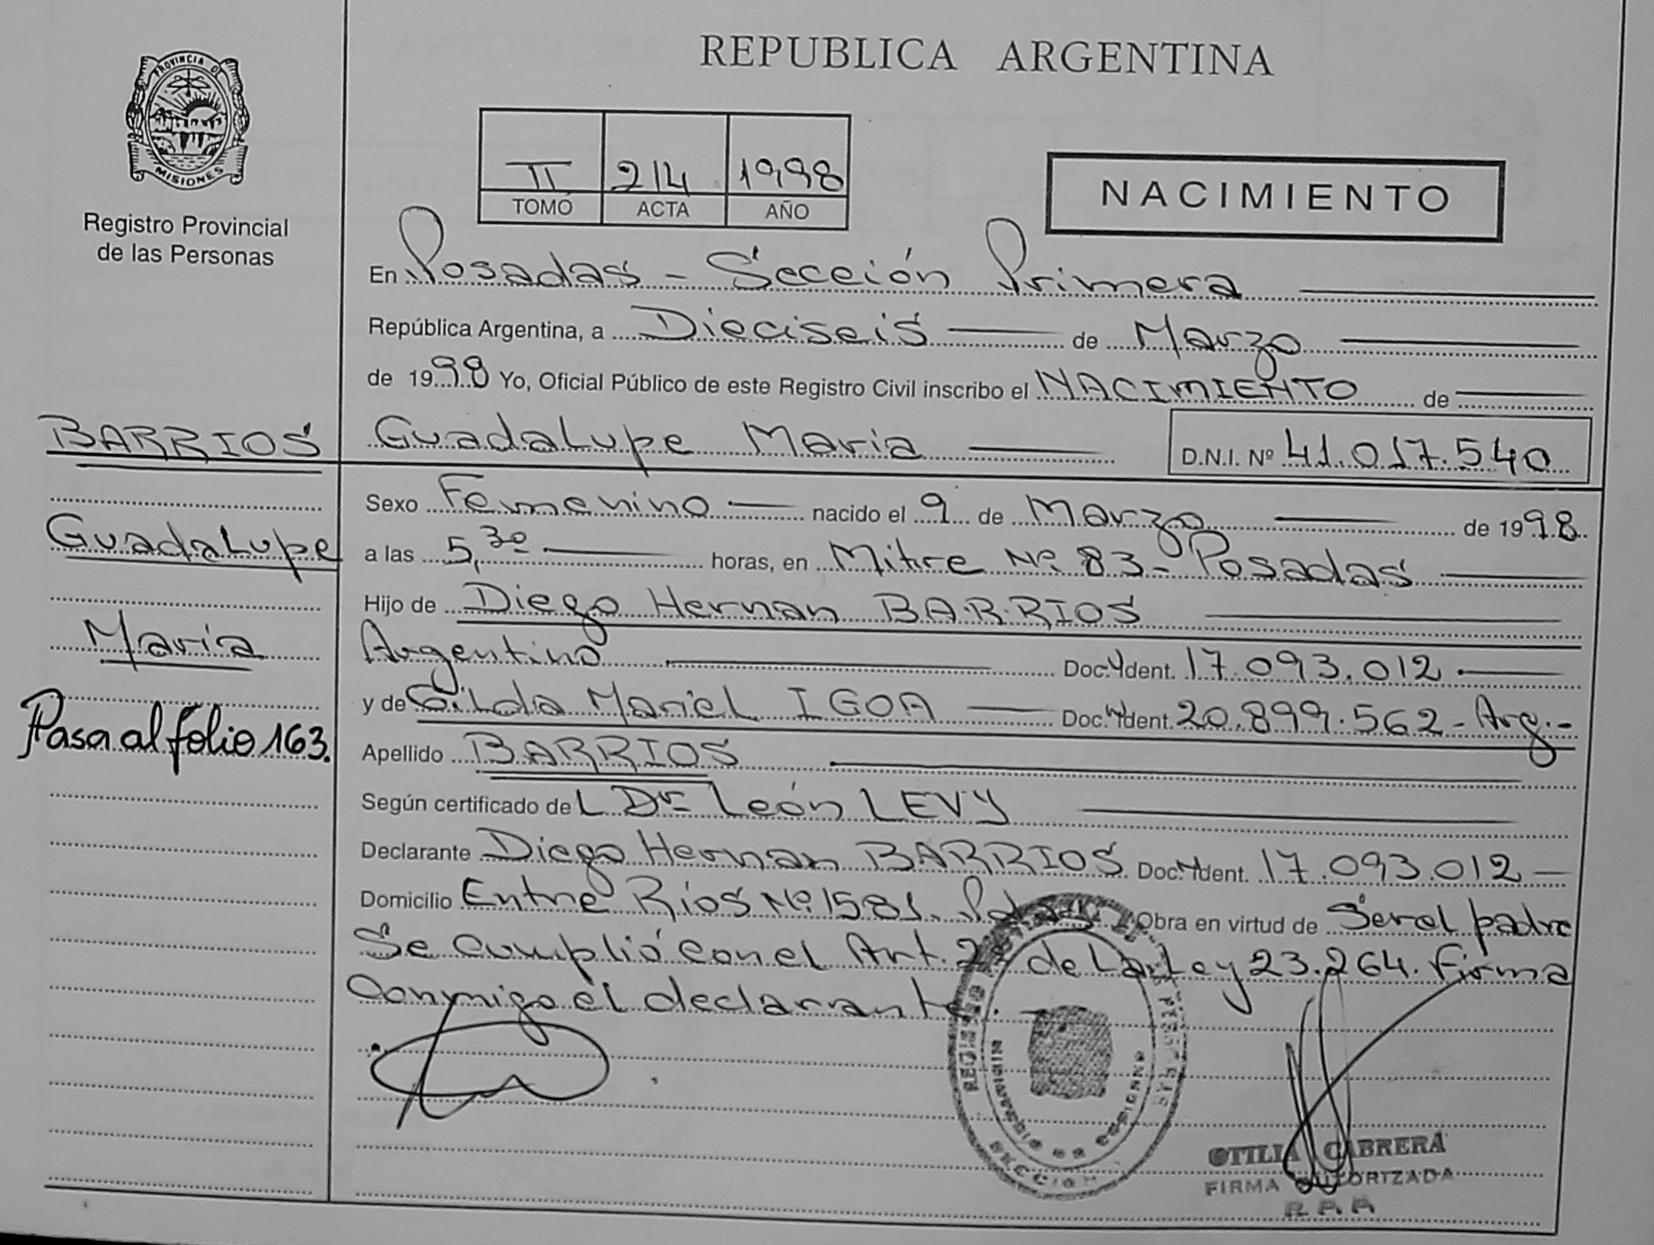 REPUBLICA ARGENTINA
PROVINCIA DE
MISIONES
Registro Provincial
de las Personas
II 214 1998
TOMO ACTA AÑO
NACIMIENTO
En Posadas - Sección Primera
República Argentina, a Dieciseis de Marzo
de 1998 Yo, Oficial Público de este Registro Civil inscribo el NACIMIENTO de
BARRIOS
Guadalupe Maria D.N.I. Nº 41.017.540
Sexo Femenino nacido el 9 de Marzo de 1998.
Guadalupe
a las 5,30 horas, en Mitre Nº 83 - Posadas
Hijo de Diego Hernan BARRIOS
María
Argentino Doc. Ydent. 17.093.012
y de Gilda Mariel IGOA Doc. Ydent. 20.899.562 - Arg.-
Pasa al folio 163.
Apellido BARRIOS
Según certificado de L Dr León LEVY
Declarante Diego Hernan BARRIOS Doc. Ydent. 17.093.012
Domicilio Entre Ríos Nº 1581. Obra en virtud de Ser el padre
Se cumplió con el Art. de La Ley 23.264. Firma
Conmigo el declarante.
REGISTRO
PROVINCIA DE MISIONES
OTILIA CABRERA
FIRMA AUTORIZADA